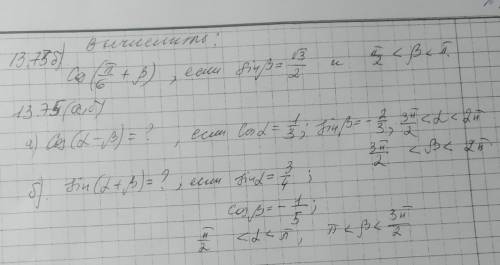 Вычислить:
13.73б) Cos(π/6 + β), если sinβ = √3/2 и π/2 < β < π.
13.75(а,б)
а) Cos(α-β) = ?, если cosα = 1/3; sinβ = -2/3, 3π/2 < α < 2π
3π/2 < β < 2π.
б). Sin(α+β) = ?, если sinα = 3/4;
cosβ = -1/5;
π/2 < α < π, π < β < 3π/2